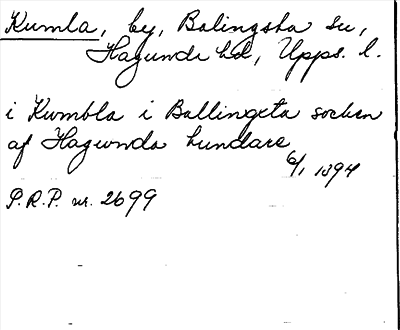 Kumla, by, Balingsta sn,
Hagunda hd, Upps. l.
i Kumbla i Ballingsta socken
af Hagunda hundare
6/1 1394
P.R.P. nr. 2699